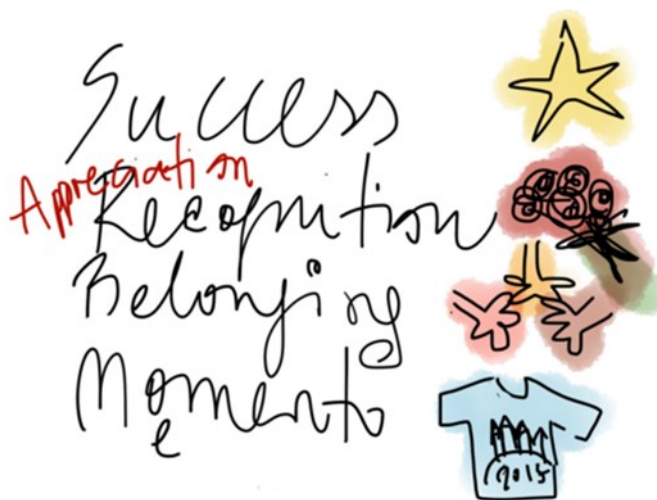 Success
Appreciation
Recognition
Belonging
Momento
e
2015